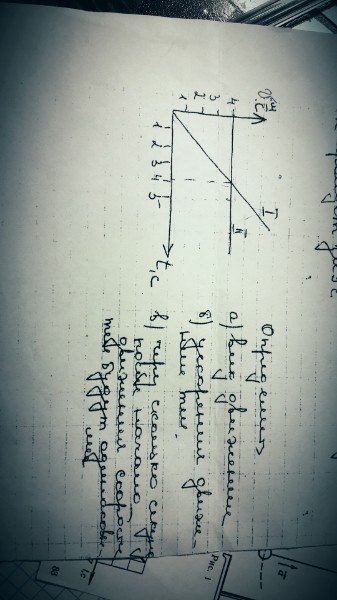 υ, м/с
4
3
2
1
1 2 3 4 5
t, с
I
II
Определить
а) вид движения
б) ускорения движе-
ния тел.
в) через сколько секунд
после начала
движения скорости
тел будут одинако-
Рис. 1